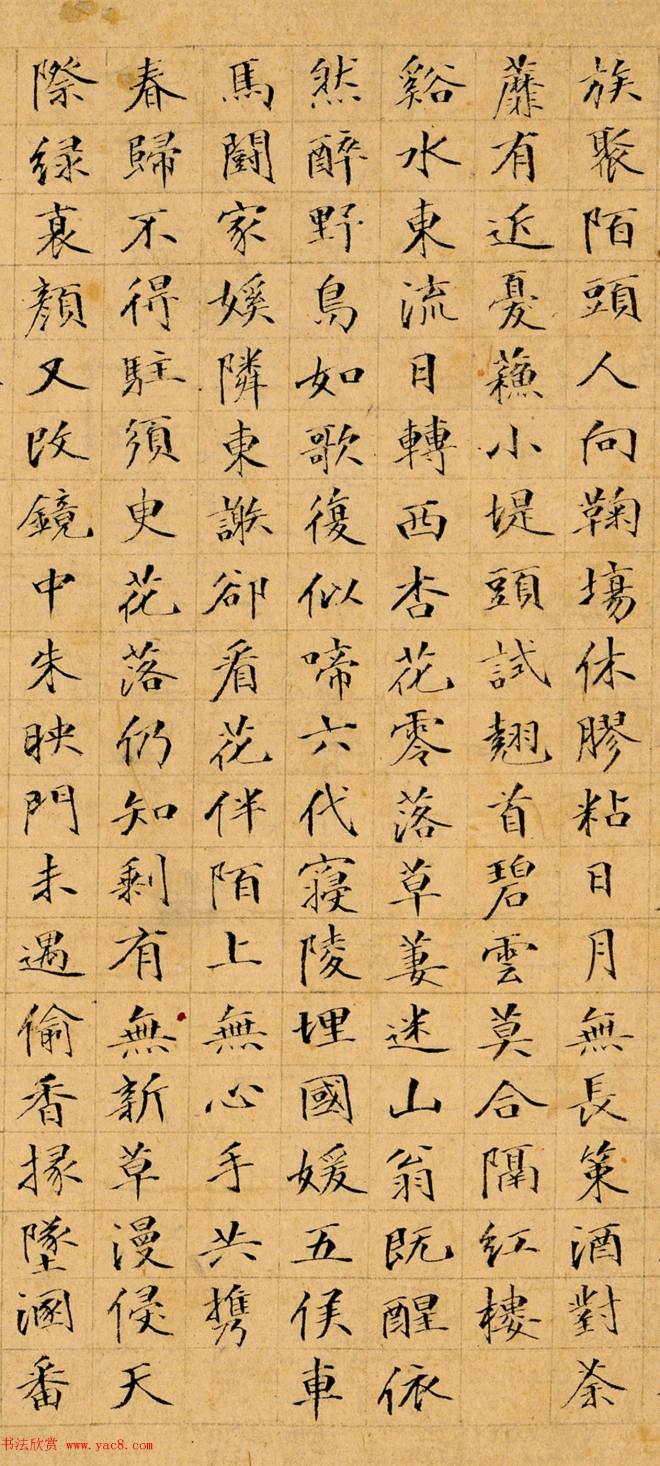 族聚陌頭人向鞠場休膠粘日月無長策酒對荼
蘼有近憂蘓小堤頭試翹首碧雲莫合隔紅樓
谿水東流日轉西杏花零落草萋迷山翁既醒依
然醉野鳥如歌復似啼六代寢陵埋國媛五侯車
馬鬪家㜎隣東謝卻看花伴陌上無心手共携
春歸不得駐須臾花落仍知剩有無新草漫侵天
際綠衰顏又改鏡中朱映門未遇偷香掾墜溷番
书法欣赏 www.yac8.com